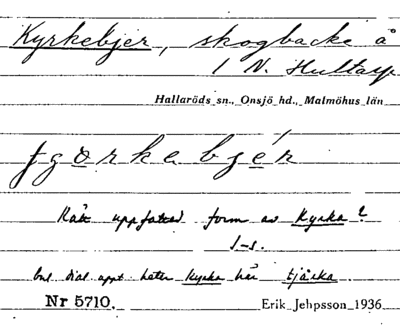 Kyrkebjer, skogbacke å
1 N. Hultarp
Hallaröds sn., Onsjö hd., Malmöhus län
Rätt uppfattad form av Kyrka?
J-s.
dial. uppt. heter Kyrka här tjärka
Nr 5710.
Erik Jehpsson 1936